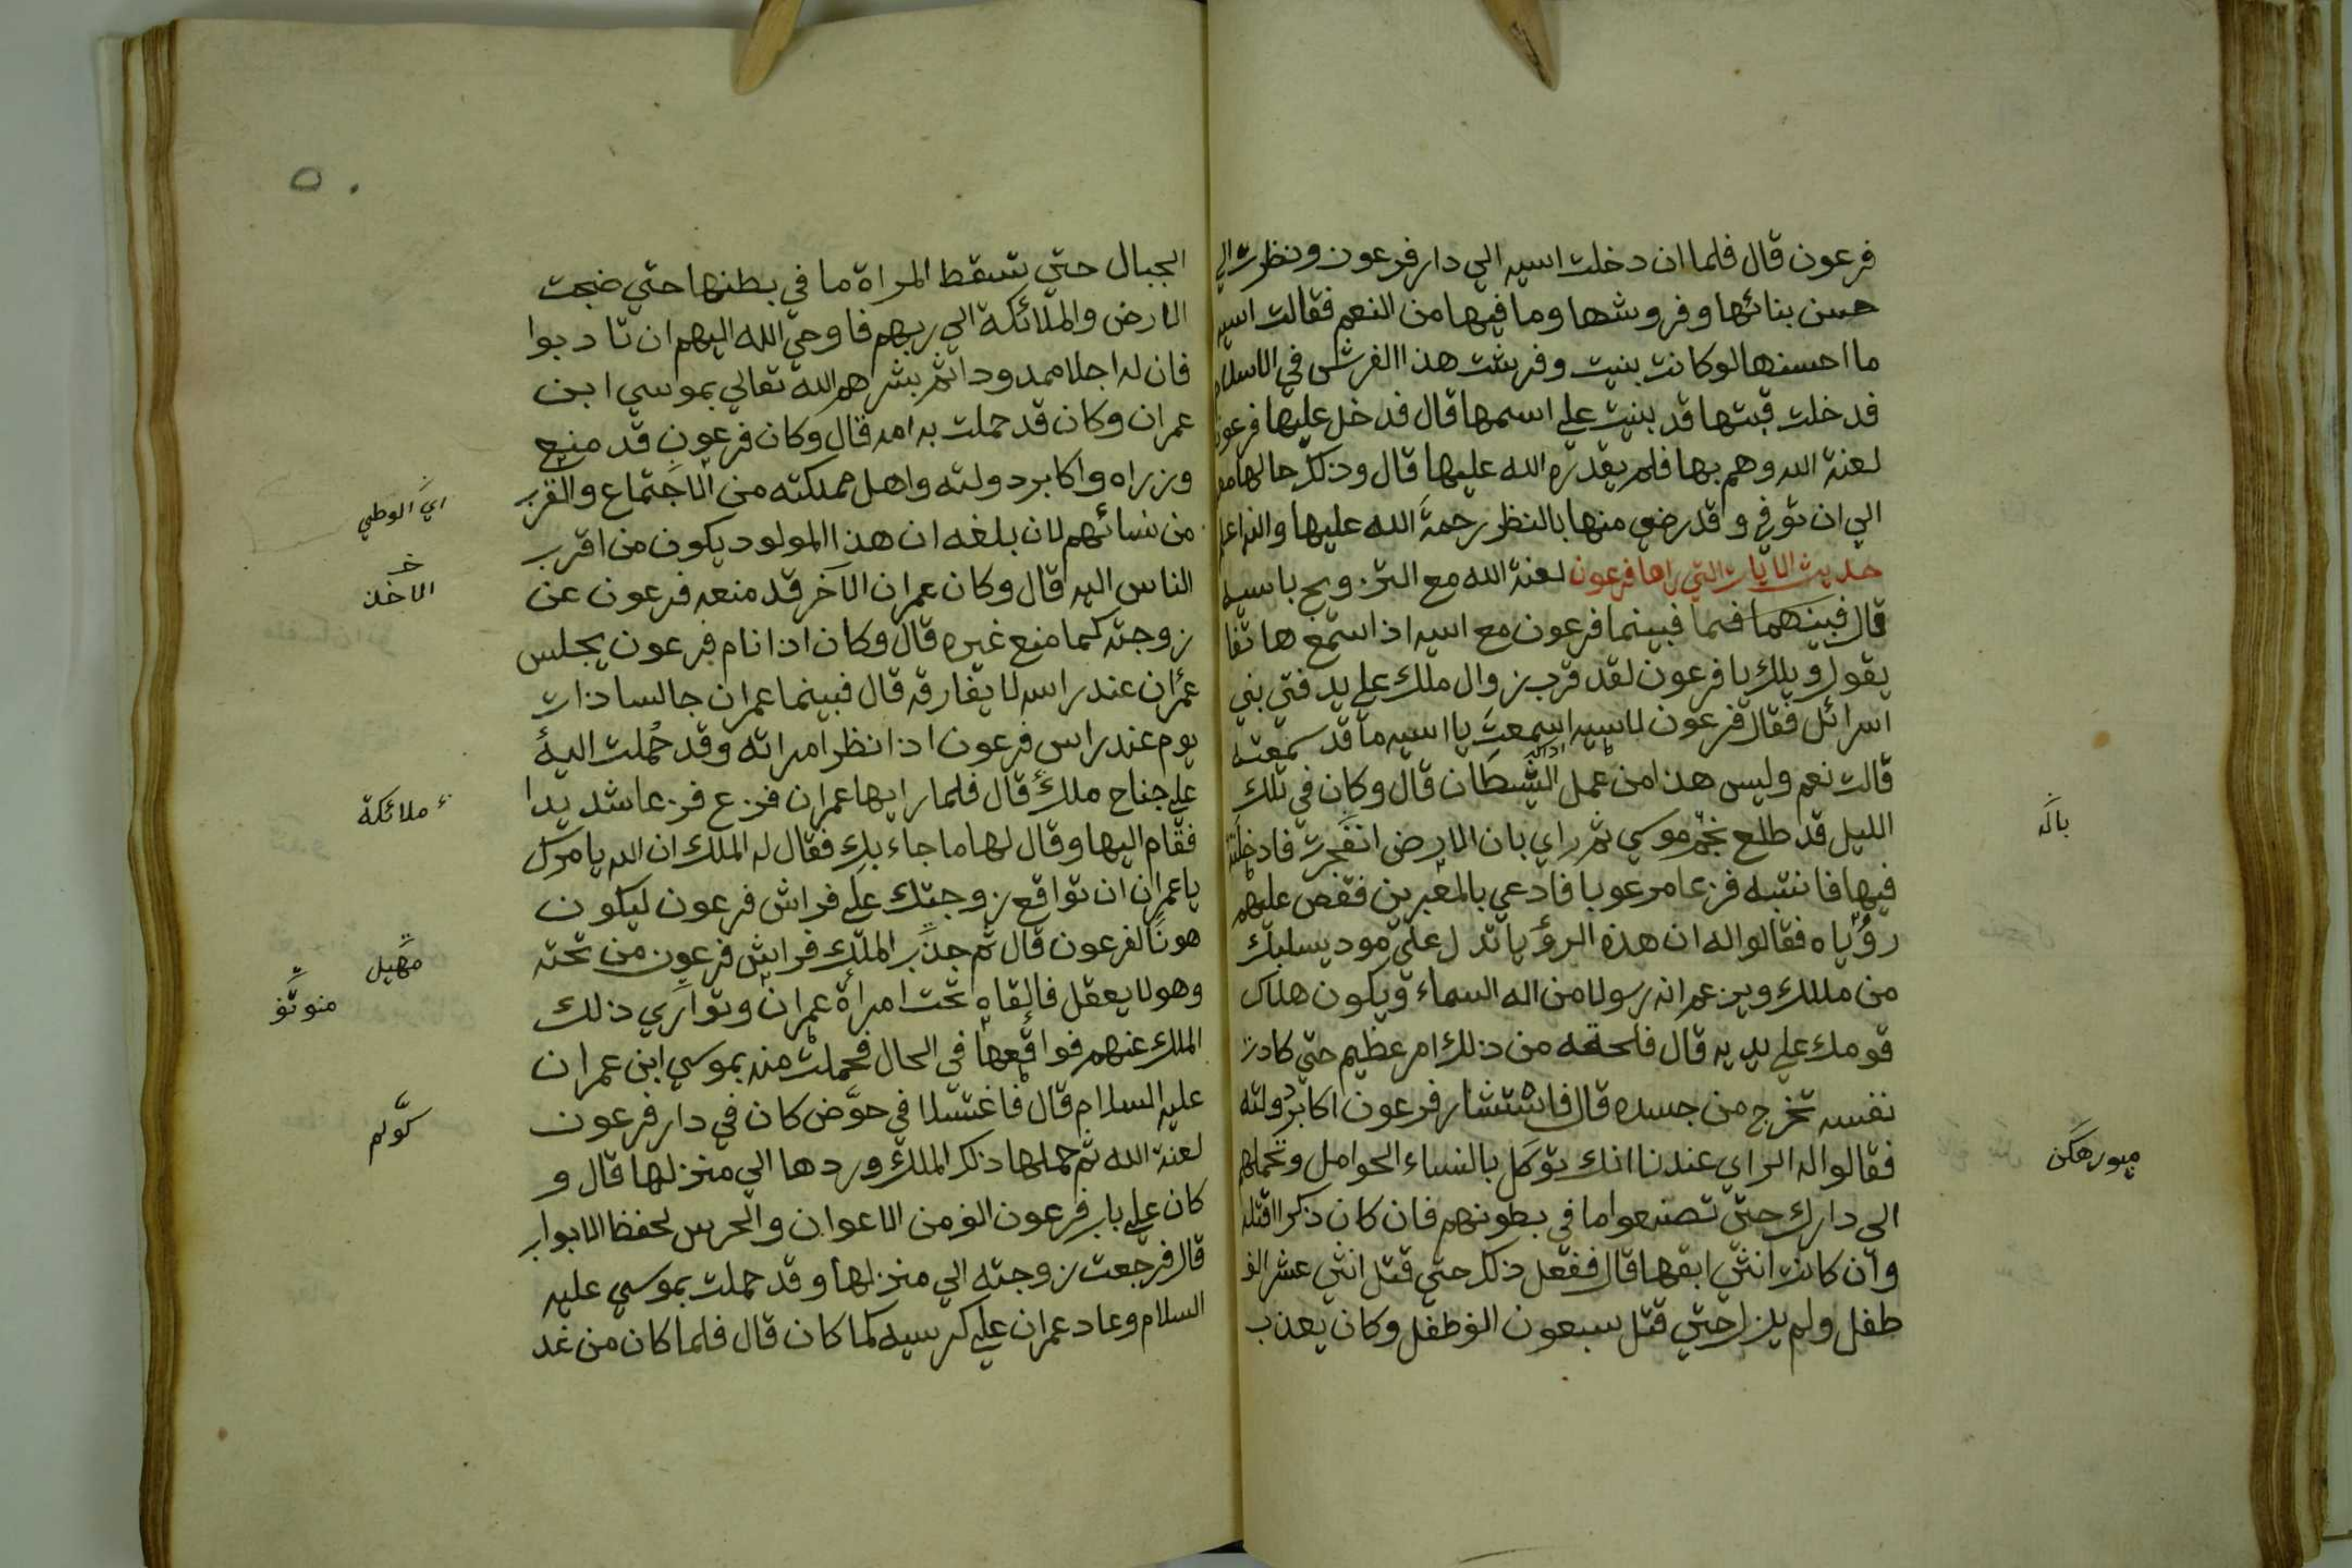 فرعون قال فلما ان دخلت اسيه الي دار فرعون ونظرت الي
حسن بنائها وفروشها وما فيها من النعم فقالت اسيه
ما احسنها لو كانت بنيت وفرشت هذا الفرش في الاسلام
فدخلت قبتها قد بنيت علي اسمها قال فدخل عليها فرعون
لعنة الله وهم بها فلم يقدره الله عليها قال وذلك حالها معه
الي ان توفي وقد رضي منها بالنظر رحمة الله عليها والله اعلم
حديث الايات التي راها فرعون لعنة الله مع التزويج باسيه
قال فبينهما فبينما فرعون مع اسيه اذ استمع هاتفا
يقول ويلك يا فرعون لقد قرب زوال ملك علي يد فتي بني
اسرائل فقال فرعون لاسيه اسمعت يا اسيه ما قد سمعته
قالت نعم وليس هذا من عمل الشيطان قال وكان في تلك
الليل قد طلع نجم موسي ثم راي بان الارض انفجرت فادخلته
فيها فانتبه فزعا مرعوبا فادعي بالمعبرين فقص عليهم
رؤياه فقالوا له ان هذه الرؤيا تدل علي مود يسلبك
من ملك ويزعم انه رسولا من اله السماء ويكون هلاك
قومك علي يديه قال فلحقه من ذلك امر عظيم حتي كادت
نفسه تخرج من جسده قال فاستشار فرعون اكابر دولته
فقالوا له الراي عندنا انك توكل بالنساء الحوامل وتحملهم
الي دارك حتي تصنعوا ما في بطونهم فان كان ذكرا اقتله
وان كانت انثي ابقها قال ففعل ذلك حتي قتل اثني عشر الف
طفل ولم يزل حتي قتل سبعون الف طفل وكان يعذب
باله
ميورهكن
٥٠
الجبال حتي تسقط المراة ما في بطنها حتي ضجت
الارض والملائكة الي ربهم فاوحي الله اليهم ان تادبوا
فان له اجلا ممدودا ثم بشرهم الله تعالي بموسي ابن
عمران وكان قد حملت به امه قال وكان فرعون قد منع
وزراه واكابر دولته واهل مملكته من الاجتماع والقرب
من نسائهم لان بلغه ان هذا المولود يكون من اقرب
الناس اليه قال وكان عمران الآخر قد منعه فرعون عن
زوجته كما منع غيره قال وكان اذا نام فرعون يجلس
عمران عند راسه لا يفارقه قال فبينما عمران جالسا ذات
يوم عند راس فرعون اذا نظر امراته وقد حُملت اليه
علي جناح ملك قال فلما رايها عمران فزع فزعا شديدا
فقام اليها وقال لها ما جاء بك فقال له الملك ان الله يامرك
يا عمران ان تواقع زوجتك علي فراش فرعون ليكون
هونا لفرعون قال ثم جذب الملك فراش فرعون من تحته
وهو لا يعقل فالقاه تحت امراة عمران وتواري ذلك
الملك عنهم فواقعها في الحال فحملت منه بموسي ابن عمران
عليه السلام قال فاغتسلا في حوض كان في دار فرعون
لعنة الله ثم حملها ذلك الملك وردها الي منزلها قال و
كان علي باب فرعون الف من الاعوان والحرس لحفظ الابواب
قال فرجعت زوجته الي منزلها وقد حملت بموسي عليه
السلام وعاد عمران علي كرسيه كما كان قال فلما كان من غد
اي الوطي
خ
الاخذ
ملائكة
مهيل
كولم